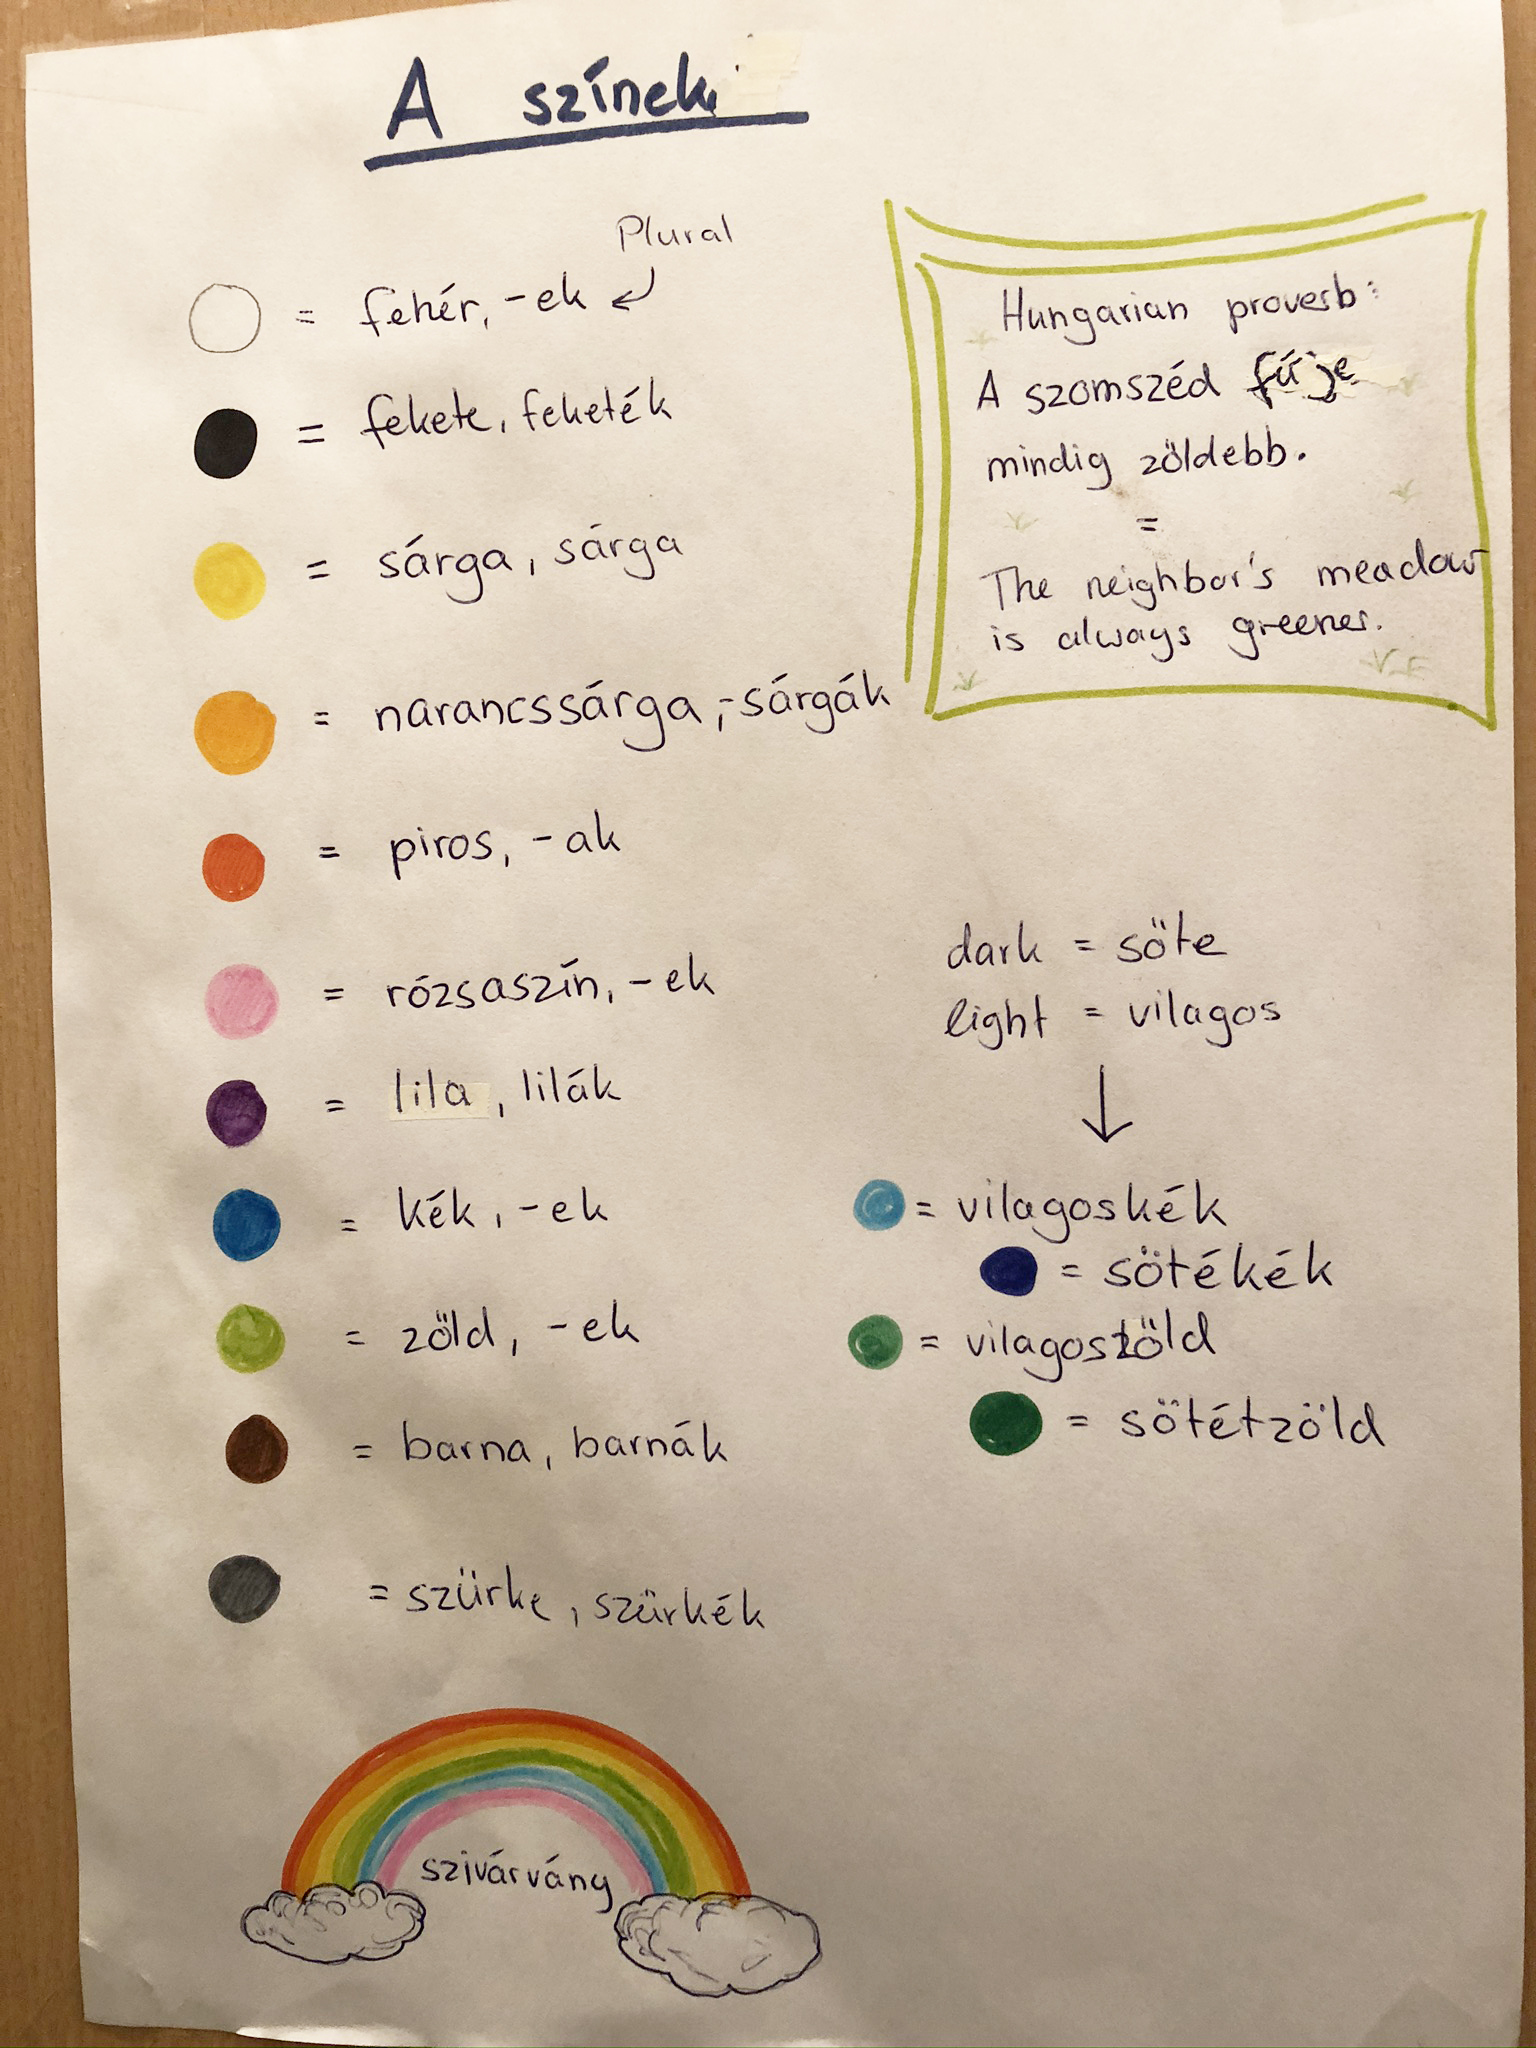 A színek
Plural
= fehér, -ek
= fekete, feketék
= sárga, sárga
= narancssárga, -sárgák
= piros, -ak
= rózsaszín, -ek
= lila, lilák
= kék, -ek
= zöld, -ek
= barna, barnák
= szürke, szürkék
szivárvány
Hungarian proverb:
A szomszéd fűje
mindig zöldebb.
=
The neighbor's meadow
is always greener.
dark = söte
light = vilagos
= vilagoskék
= sötékék
= vilagoszöld
= sötétzöld